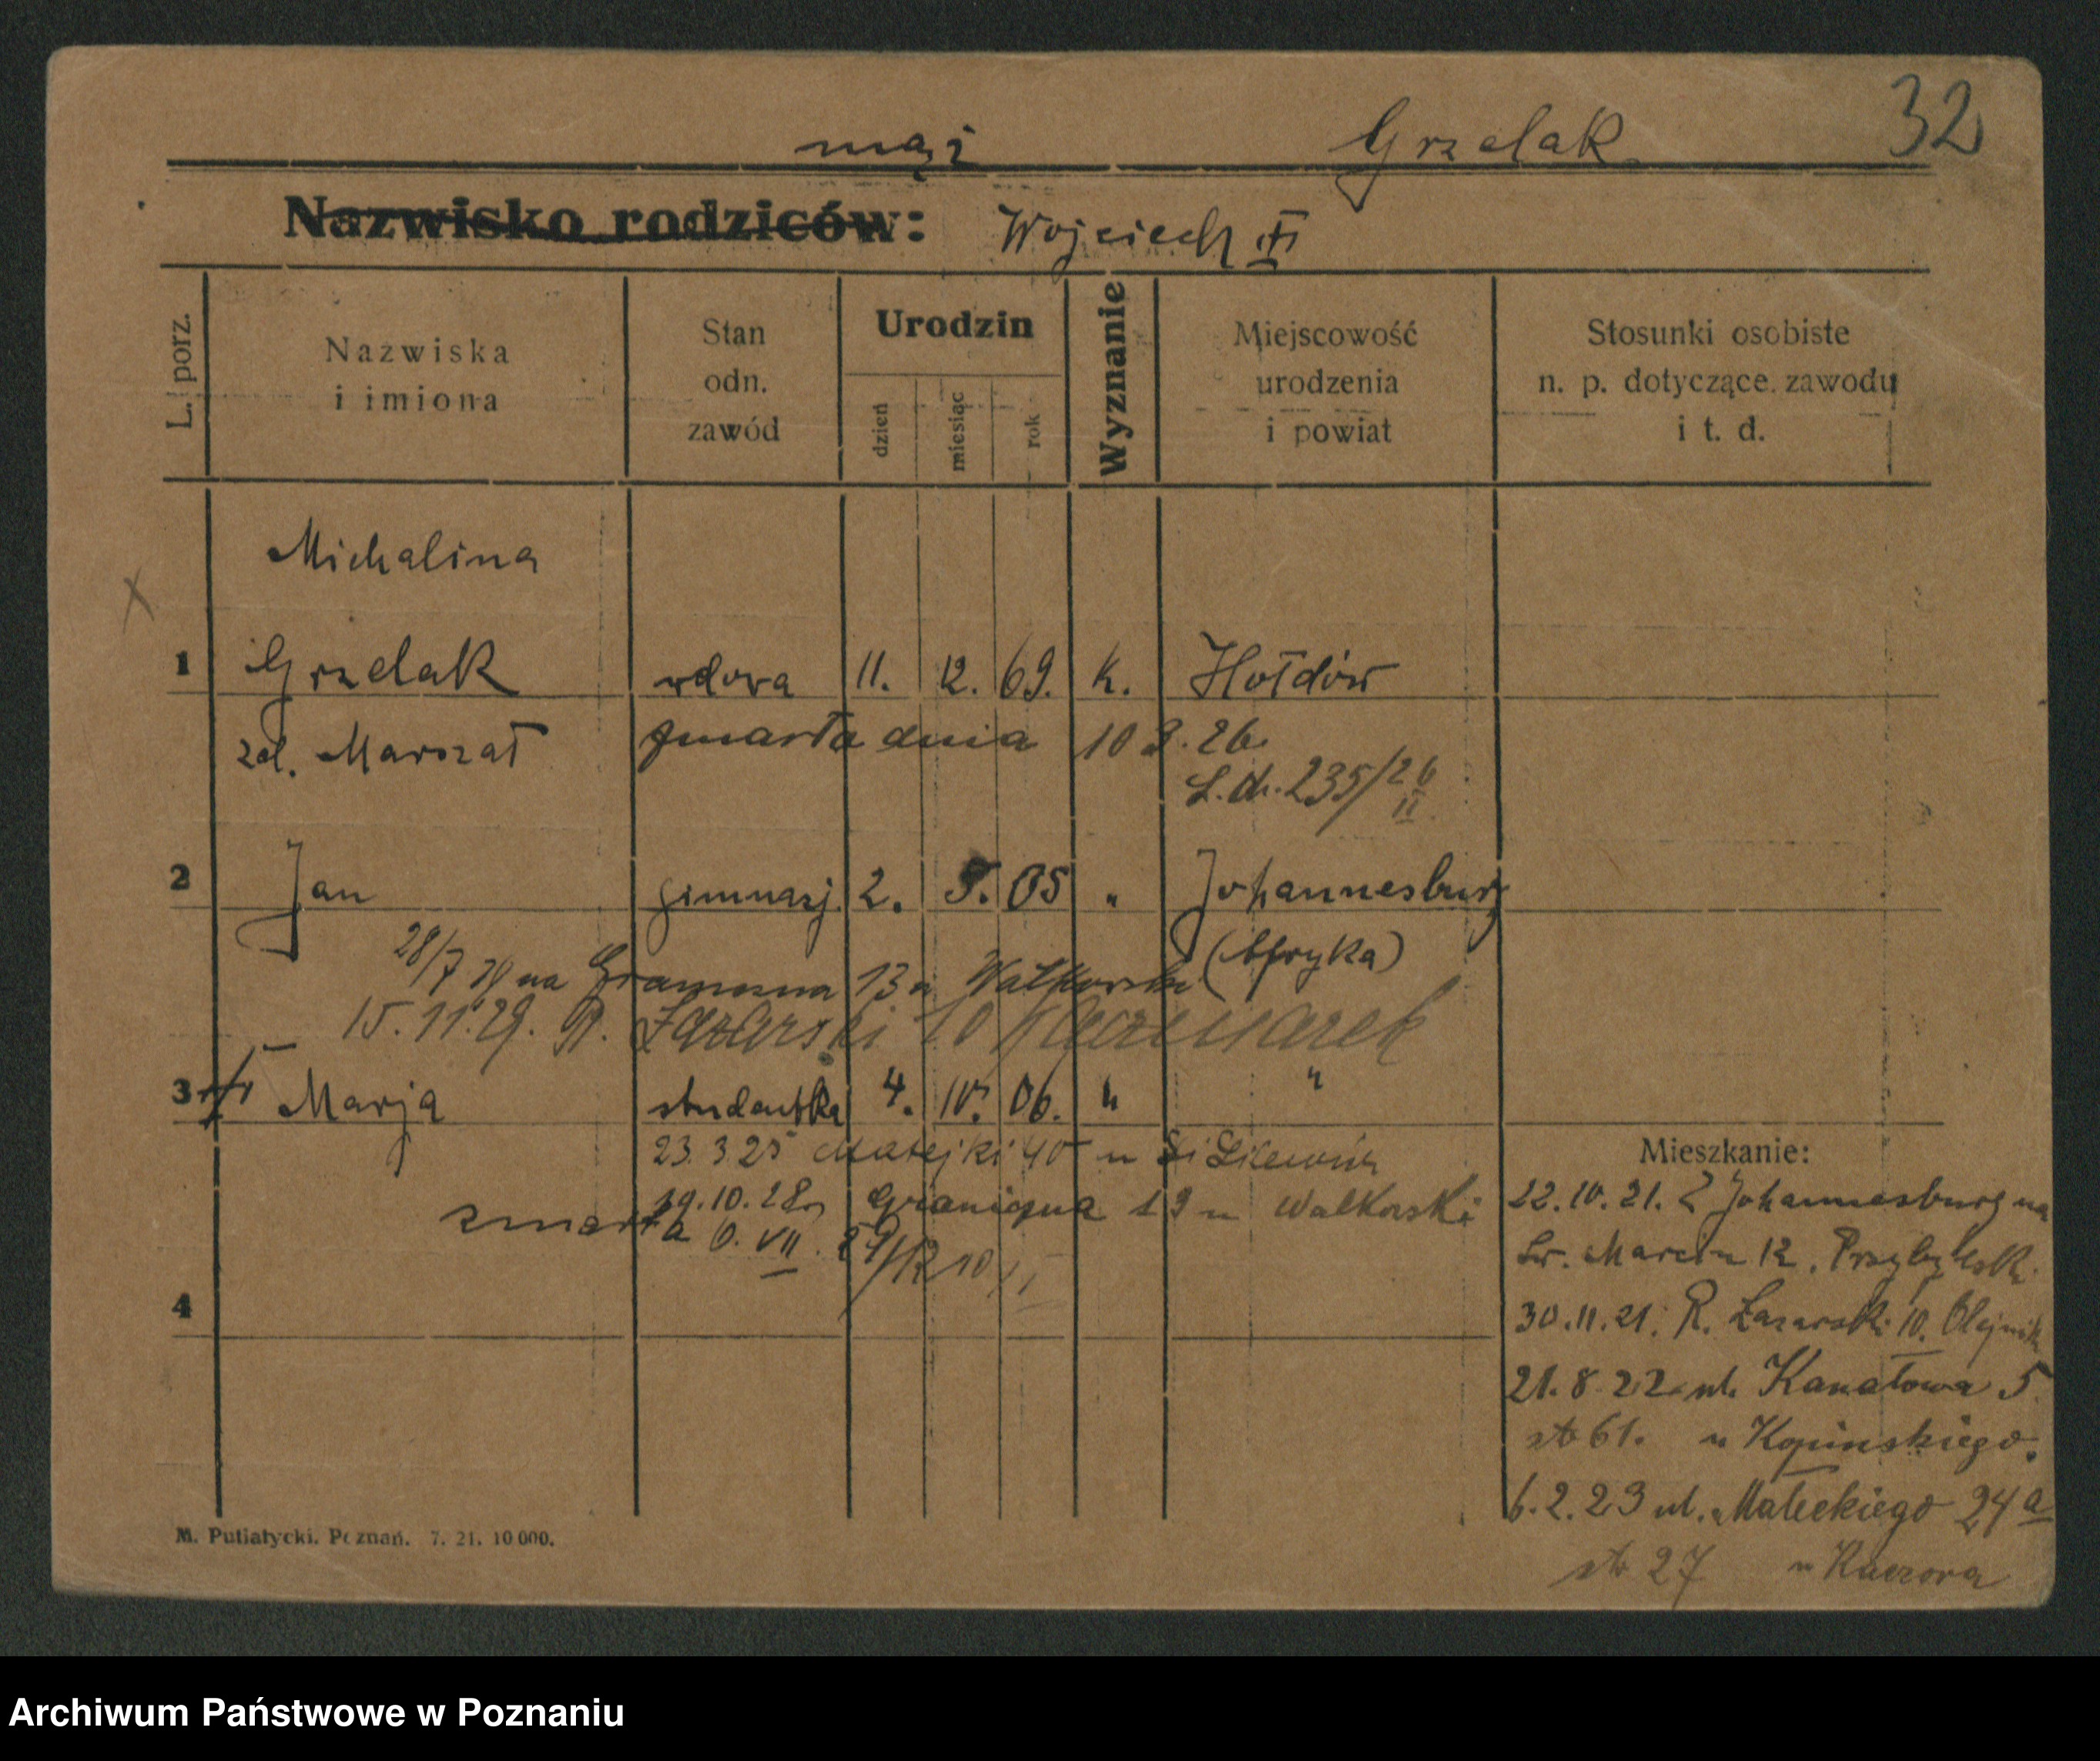 32
mąż Grzelak
Nazwisko rodziców: Wojciech
L. porz. Nazwiska i imiona Stan odn. zawód Urodzin dzień miesiąc rok Wyznanie Miejscowość urodzenia i powiat Stosunki osobiste n. p. dotyczące zawodu i t. d.
Michalina
1 Grzelak wdowa 11. 12. 69. k. Hołdów
zd. Marszał zmarła dnia 10 . 26.
L. dz. 235/26 II
2 Jan gimnazj. 2. 05 " Johannesburg
(Afryka)
28/7 na 13 u Walkowski
15. 11. 29. R. Łazarski 10 Kaczmarek
3 Marja studentka 4. 10. 06. " "
23. 3. 25 Matejki 40 u
19. 10. 28 Graniczna 13 u Walkowski
zmarła 6. VII.
4
Mieszkanie:
22. 10. 21. Z Johannesburg na
Św. Marcin 12. Przybylski
30. 11. 21. R. Łazarski 10. Olejnik
21. 8. 22 ul. Kanałowa 5
str 61. u Kopinskiego.
6. 2. 23 ul. Małeckiego 24a
str 27 u Kaczora
M. Putiatycki. Poznań. 7. 21. 10000.
Archiwum Państwowe w Poznaniu